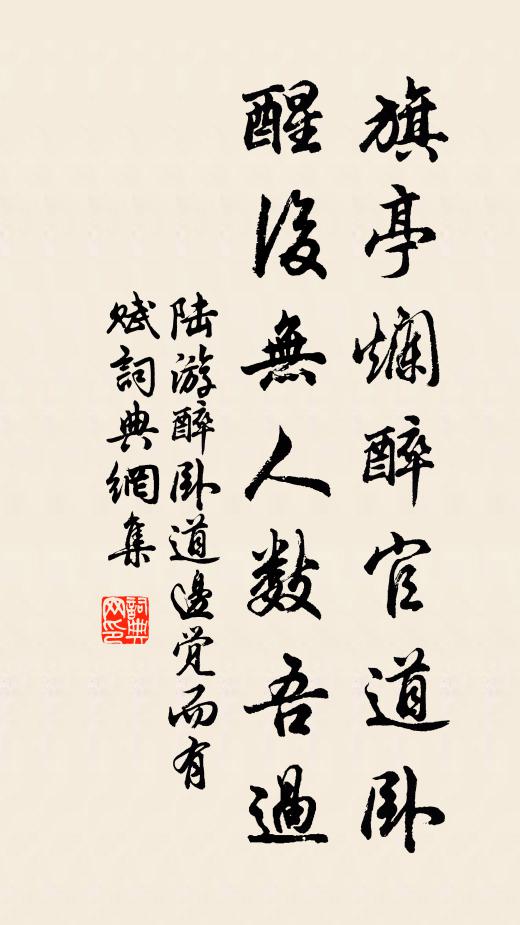 旗亭爛醉官道卧
醒後無人數吾過
陆游醉卧道邊覚而有
赋詞典網集
詞典
网印